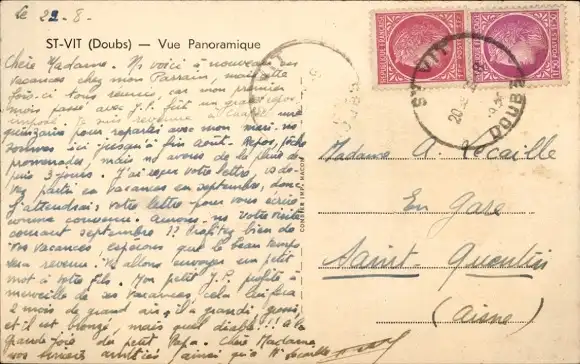 Le 22-8-
ST-VIT (Doubs) — Vue Panoramique
Chère Madame. Ns voici à nouveau en
vacances chez mon Parrain, mais cette
fois-ci tous réunis, car mon premier
mois passé avec J.P. fait un grand
imposé. Je suis revenue à une
quinzaine pour repartir avec mon mari. ns
sommes ici jusqu'à fin août. Repos, pêche
promenades, mais ns avons de la pluie de-
puis 3 jours. J'ai reçu votre lettre, vs de-
vez partir en vacances en septembre, donc
j'attendrai votre lettre pour vous écrire
comme convenu. Aurons-ns votre visite
courant septembre ?? Profitez bien de
vos vacances, espérons que le beau temps
sera revenu. Ns allons envoyer un petit
mot à votre fils. Mon petit J.P. profite à
merveille de ses vacances, cela lui fera
2 mois de grand air, il a grandi, grossi
et il est bronzé, mais quel diable!!! à la
grande joie de petit Papa. Chère Madame
nos amitiés ainsi qu'à Mr Lecaille
CONSIER IMP. MACON
REPUBLIQUE FRANÇAISE
POSTES
ST VIT
DOUBS
Madame A. Lecaille
En Gare
Saint-Quentin
(Aisne)